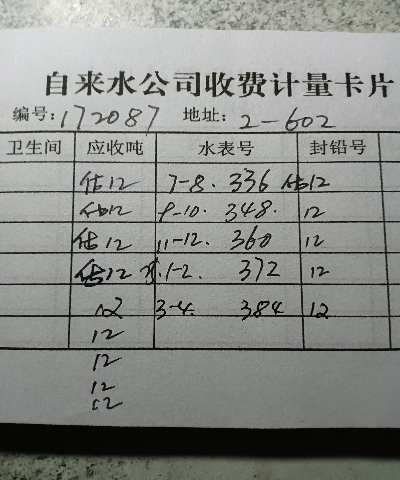 自来水公司收费计量卡片
编号: 172087 地址: 2-602
卫生间 应收吨 水表号 封铅号
估12 7-8. 336 估12
估12 9-10. 348. 12
估12 11-12. 360 12
估12 1-2. 372 12
12 3-4. 384 12
12
12
12
12